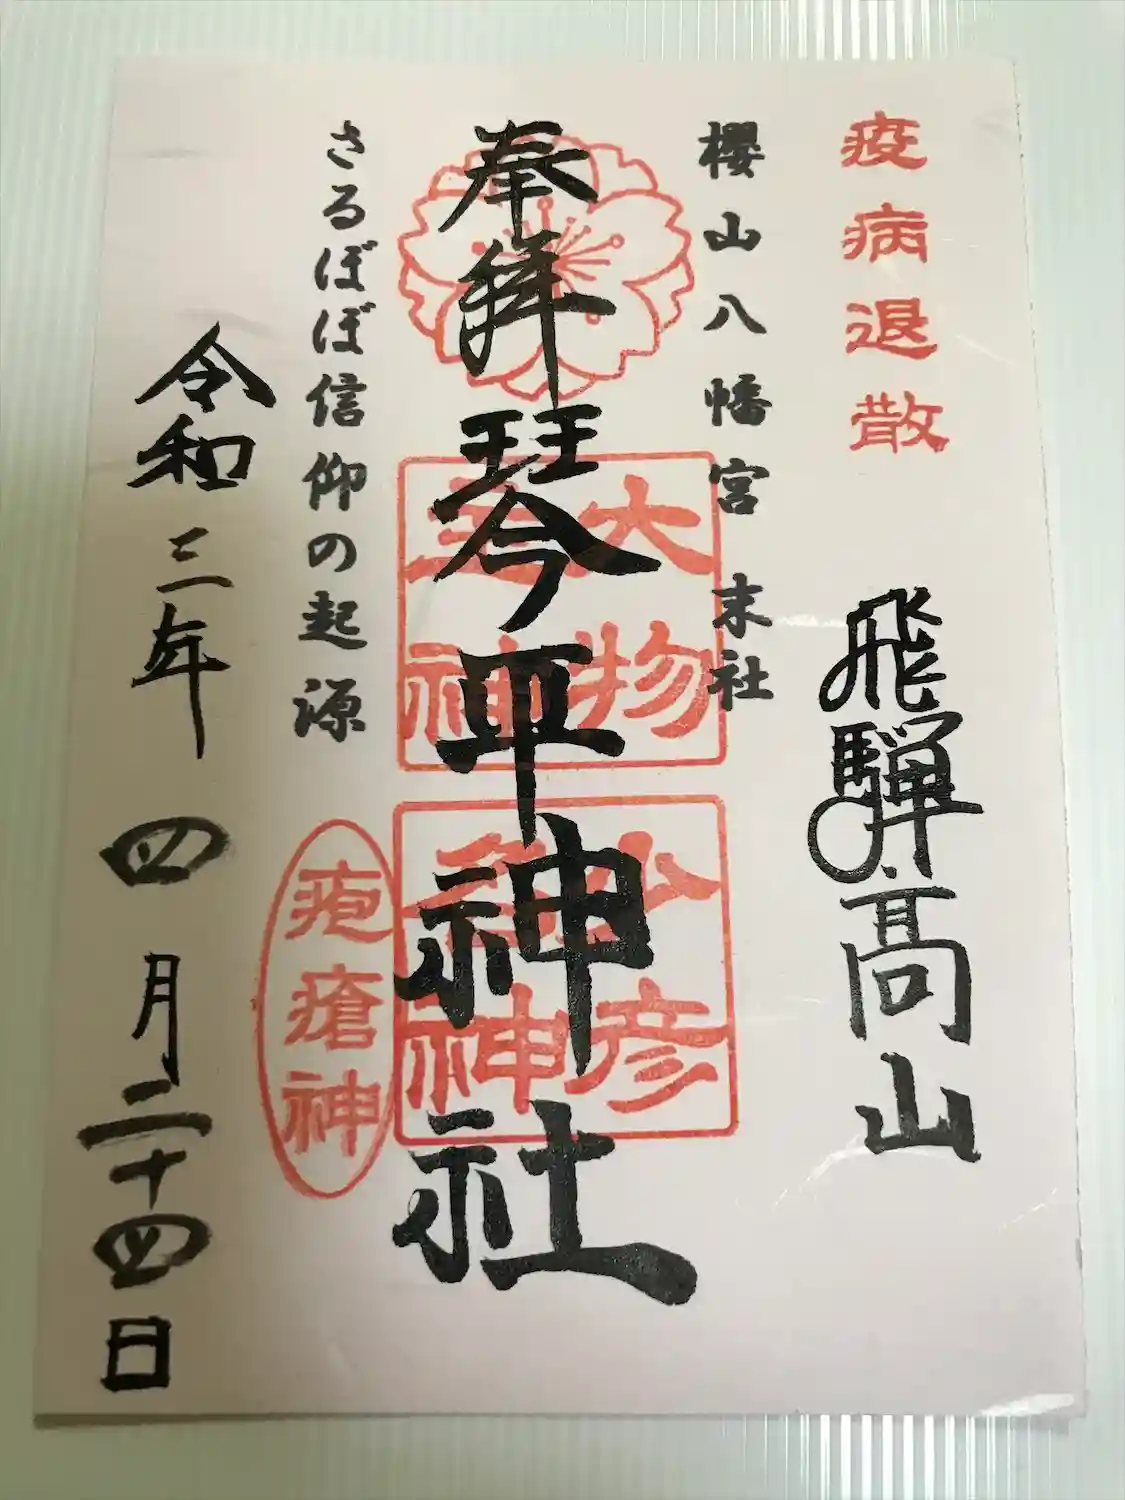 疫病退散
飛騨高山
櫻山八幡宮 末社
奉拜
琴平神社
大物
主神
少彦
名神
さるぼぼ信仰の起源
疱瘡神
令和三年四月二十四日